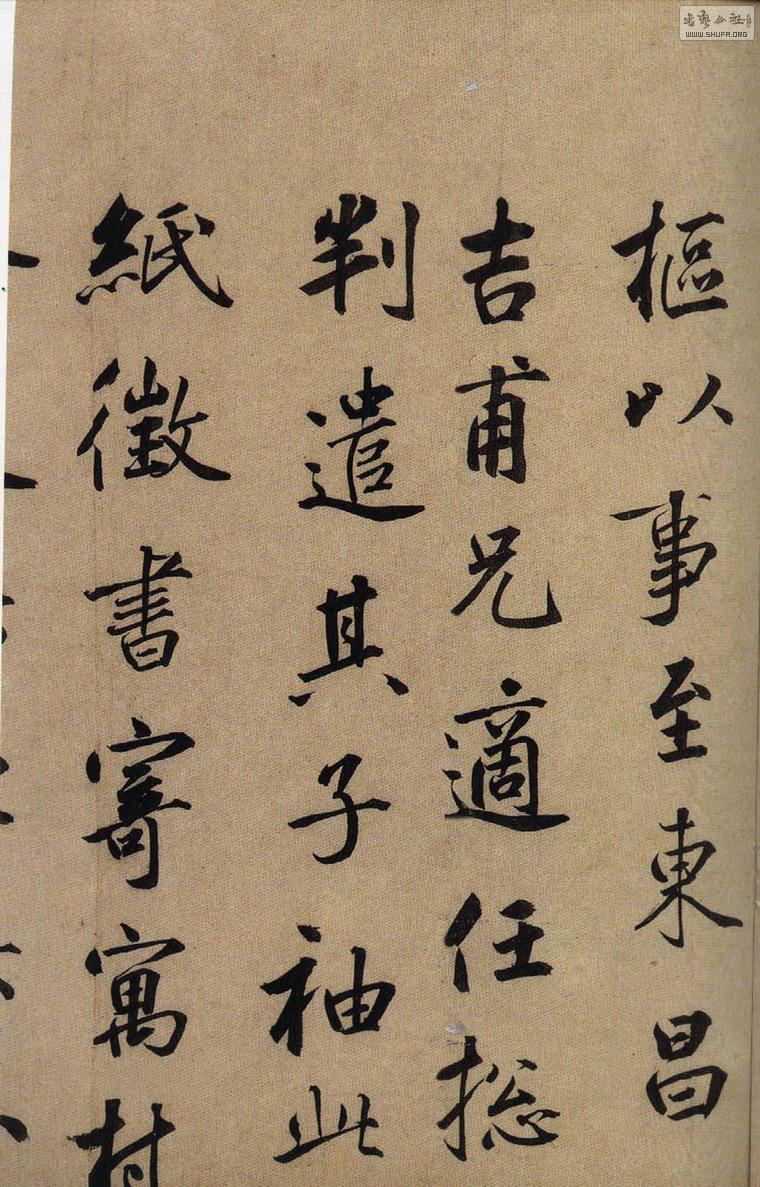 樞以事至東昌
吉甫兄適任総
判遣其子袖此
紙徵書寄寓村
WWW.SHUFA.ORG